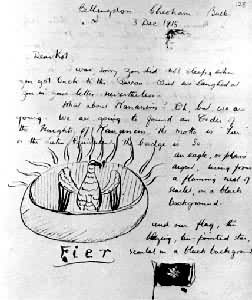 128
Bellingdon Chesham Bucks
3 Dec 1915
Dear Kot
I was sorry you did not sleep, when
you got back to the
you in your letter, nevertheless.
What about Rananim? Oh, but we are
going. We are going to found an Order of
the Knights of Rananim. The motto is 'Fier'
or the Latin equivalent. The badge is So
an eagle, or phoenix
argent, rising from
a flaming nest of
scarlet, on a black
background.
and our flag, the
blazing, ten pointed star,
scarlet on a black background
Fier